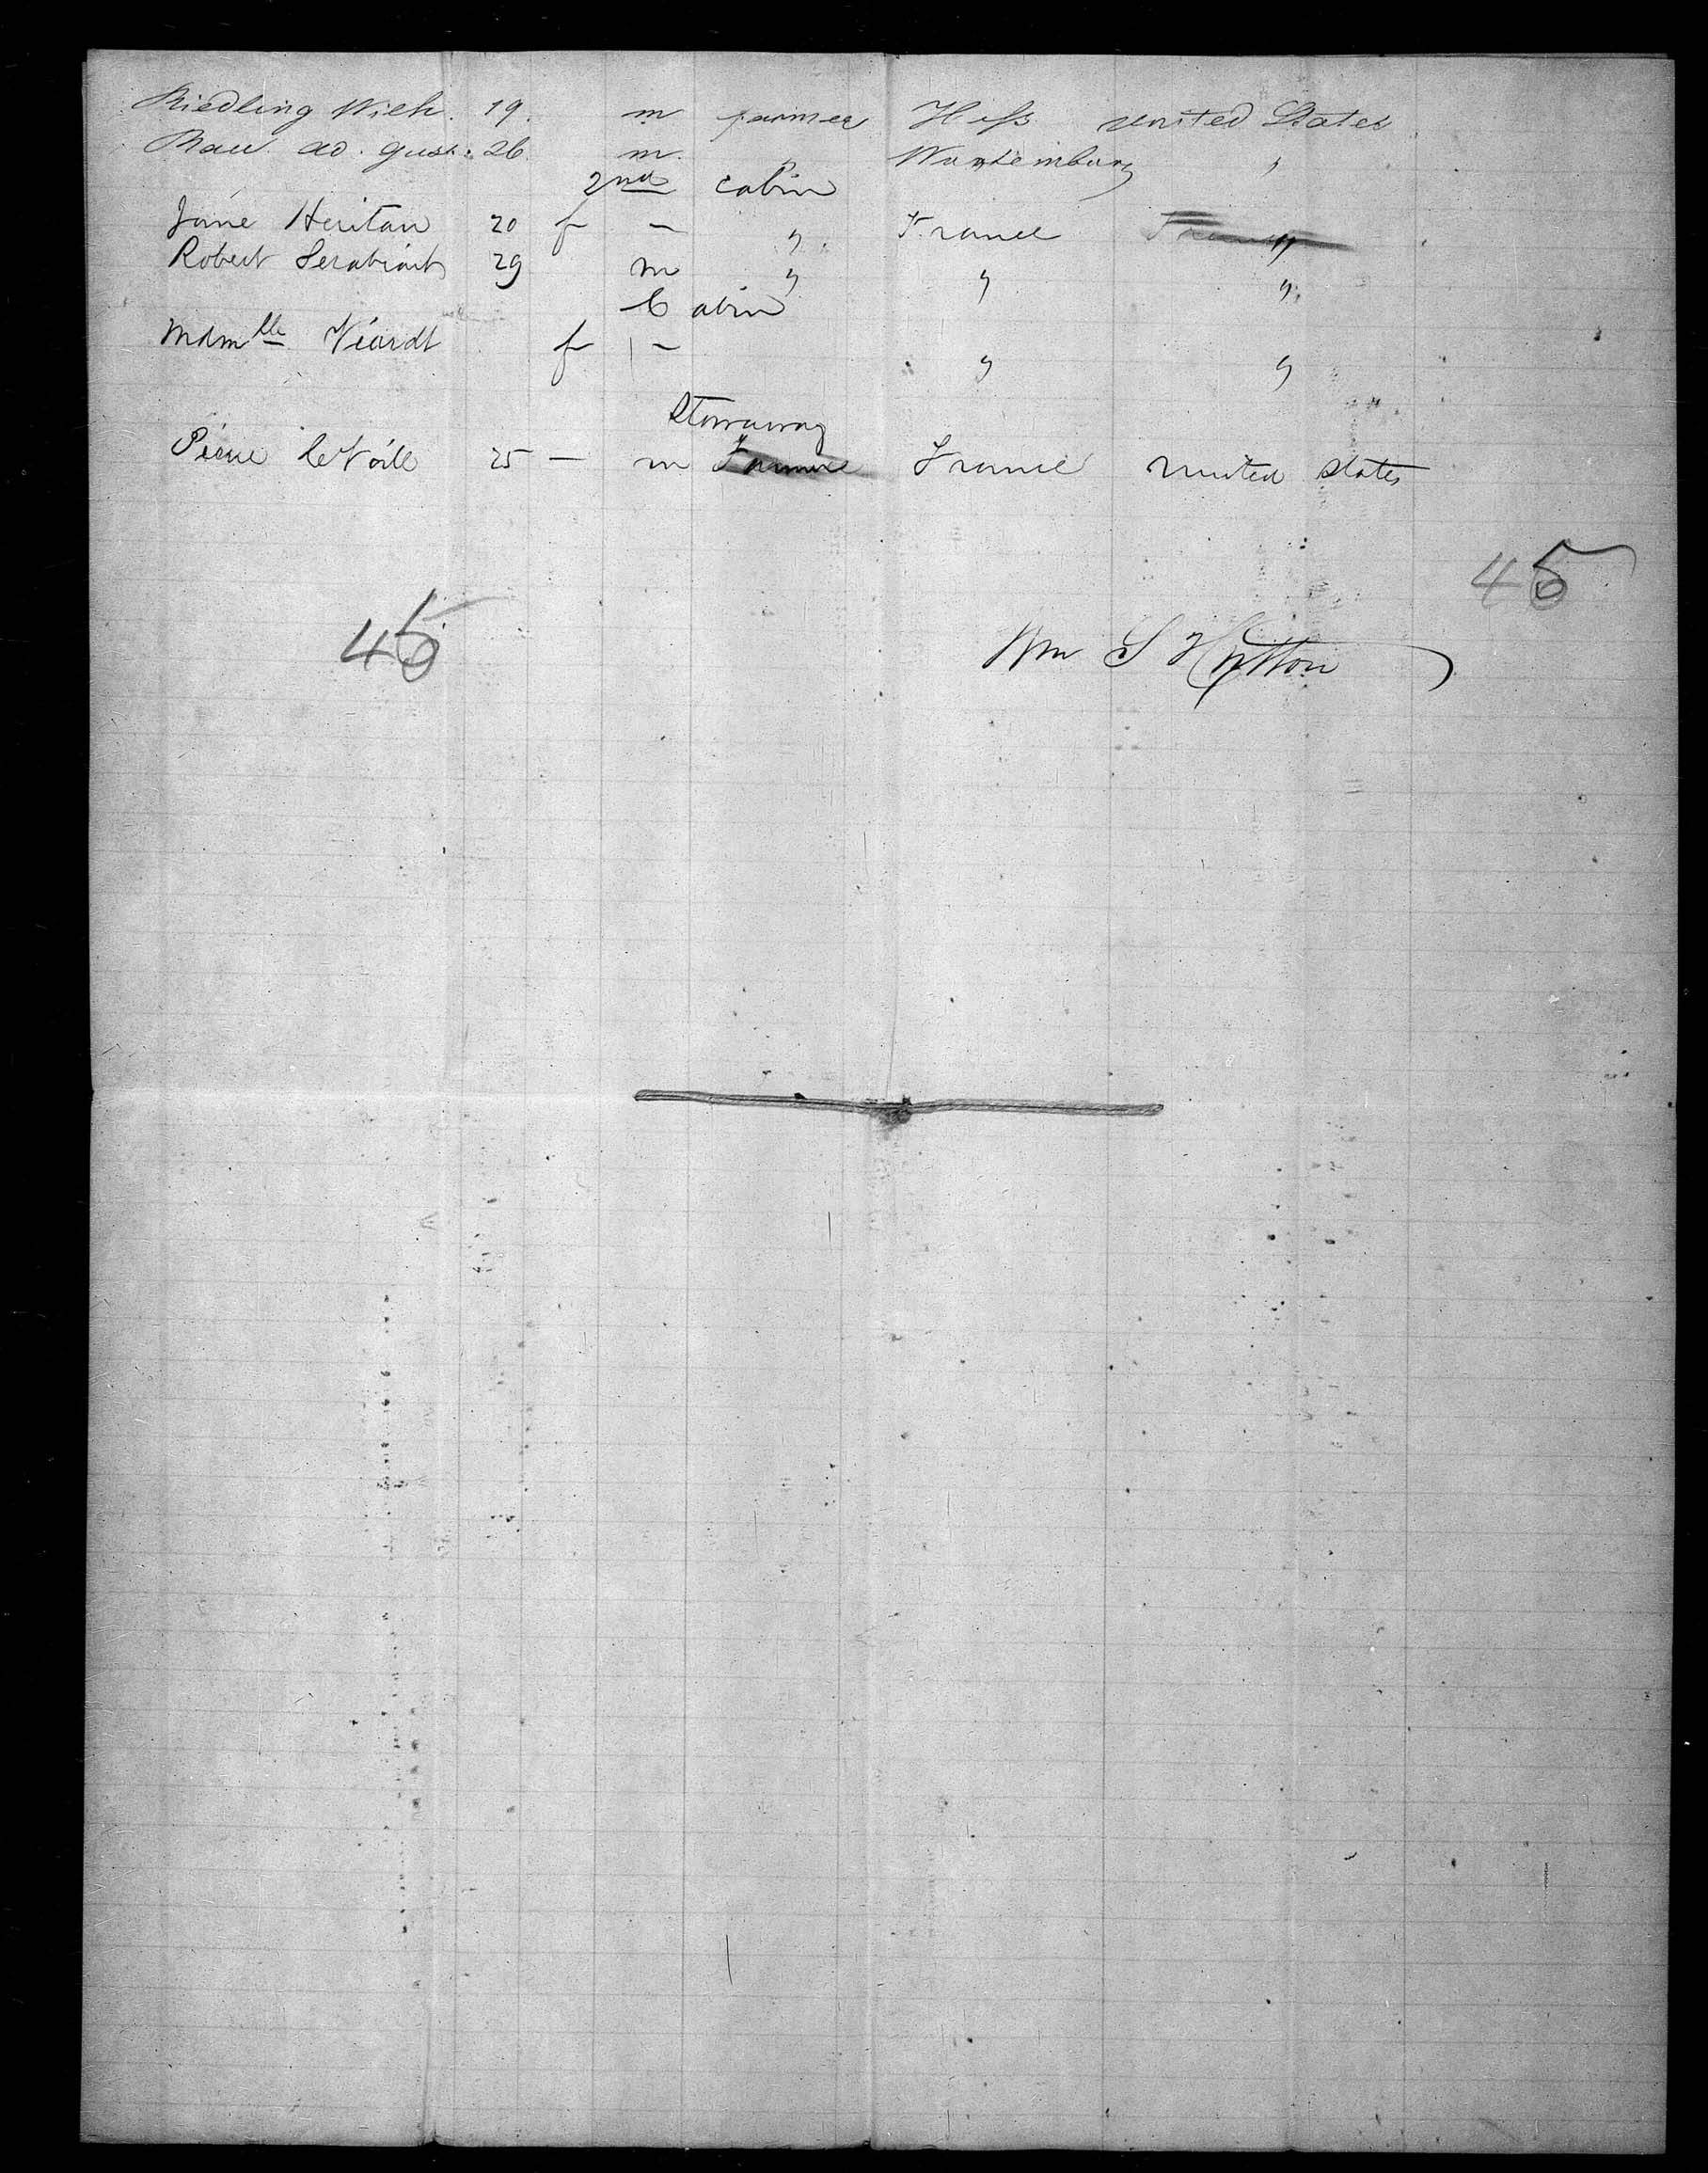 Riedling Wilh. 19. m farmer Hess United States
Bau ad. gust. 26 m. " Wurtemburg "
2nd Cabin
Jane Heritan 20 f — " France "
Robert 29 m " " "
Cabin
Mdmlle Viardt f — " "
Stowaway
Pierre leNoile 25 — m Farmer France United States
45
45
Wm S Hutton